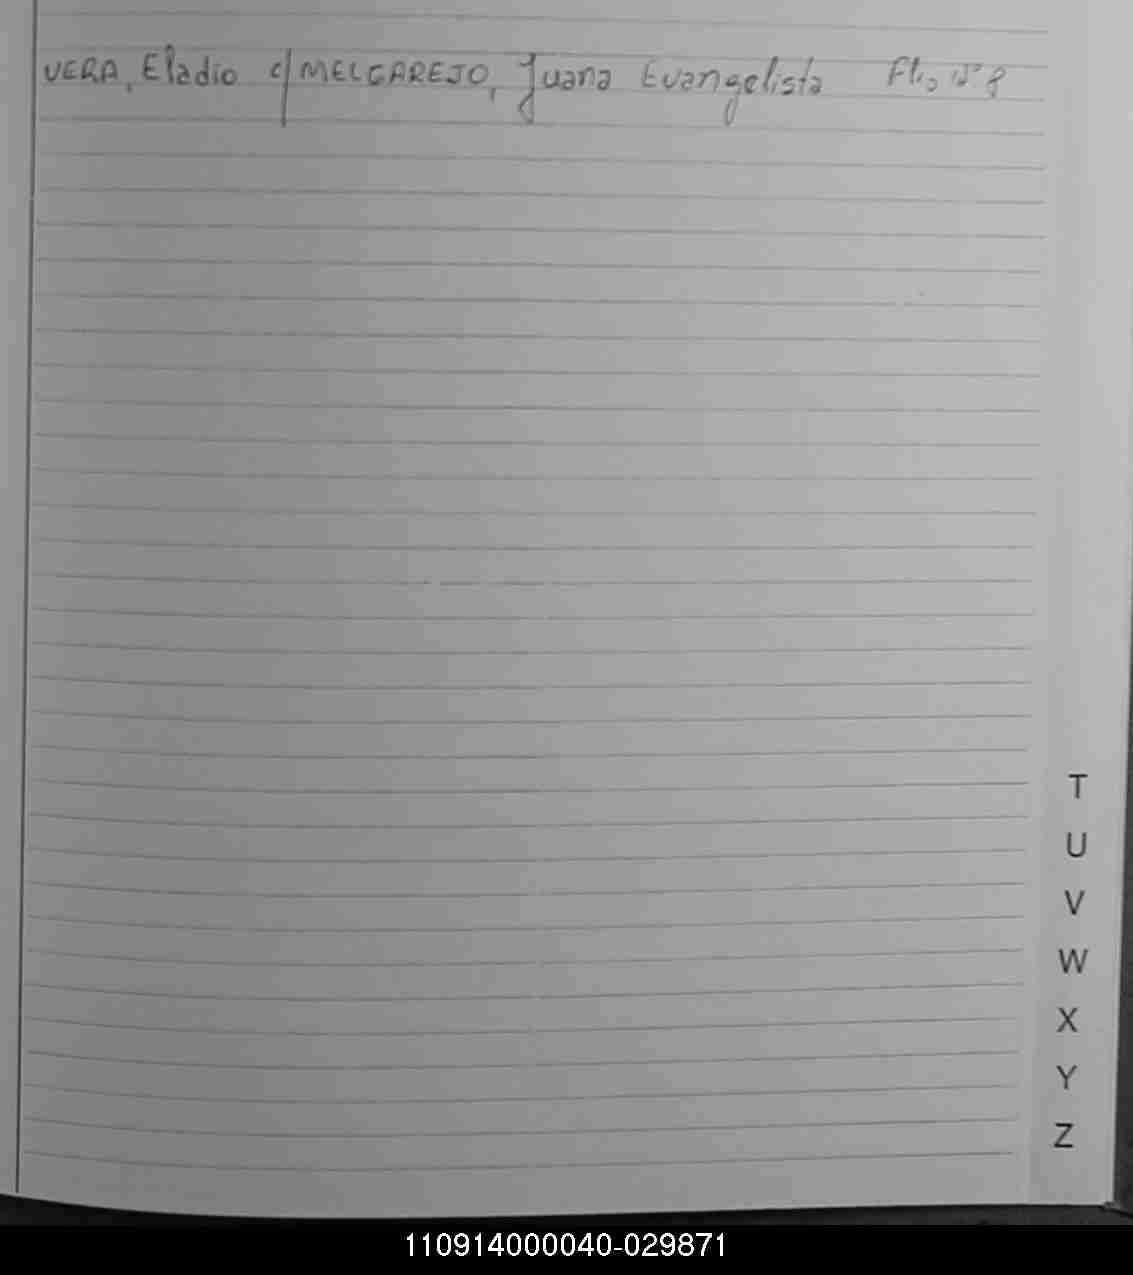 VERA, Eladio c/ MELGAREJO, Juana Evangelista Flio Nº 8
T
U
V
W
X
Y
Z
110914000040-029871